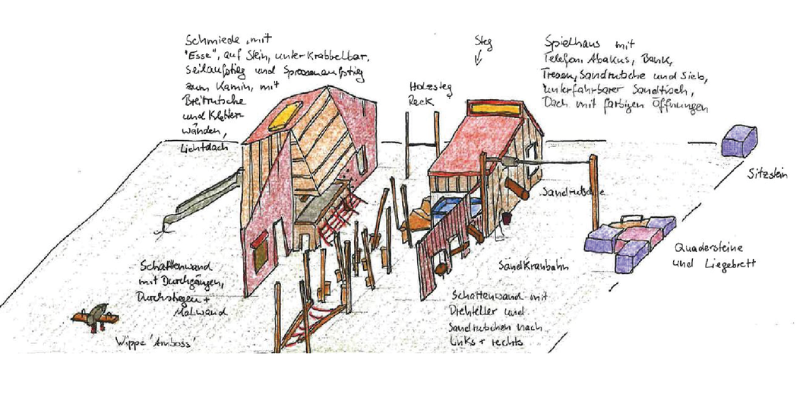 Schmiede mit
"Esse", auf Stein, unterkrabbelbar,
Seilaufstieg und Sprossenaufstieg
zum Kamin, mit
Breitrutsche
und Kletter-
wänden,
Lichtdach
Holzsteg
Reck
Steg
Spielhaus mit
Telefon, Abakus, Bank,
Tresen, Sandrutsche und Sieb,
unterfahrbarer Sandtisch,
Dach mit farbigen Öffnungen
Sitzstein
Sandrutsche
Quadersteine
und Liegebrett
Sandkranbahn
Schattenwand
mit Durchgängen,
Durchstiegen +
Malwand
Wippe 'Amboss'
Schattenwand mit
Drehteller und
Sandrutschen nach
links + rechts